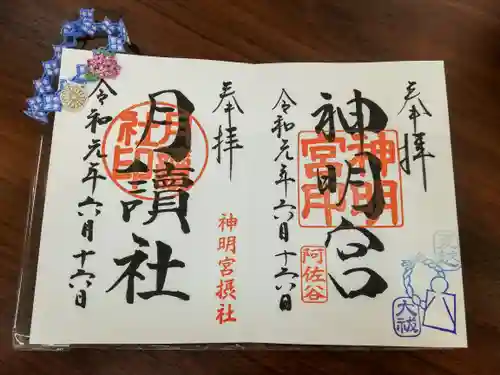 奉拝
神明宮
神明宮印
阿佐谷
令和元年六月十六日
大祓
奉拝
月讀社
月讀社印
神明宮摂社
令和元年六月十六日